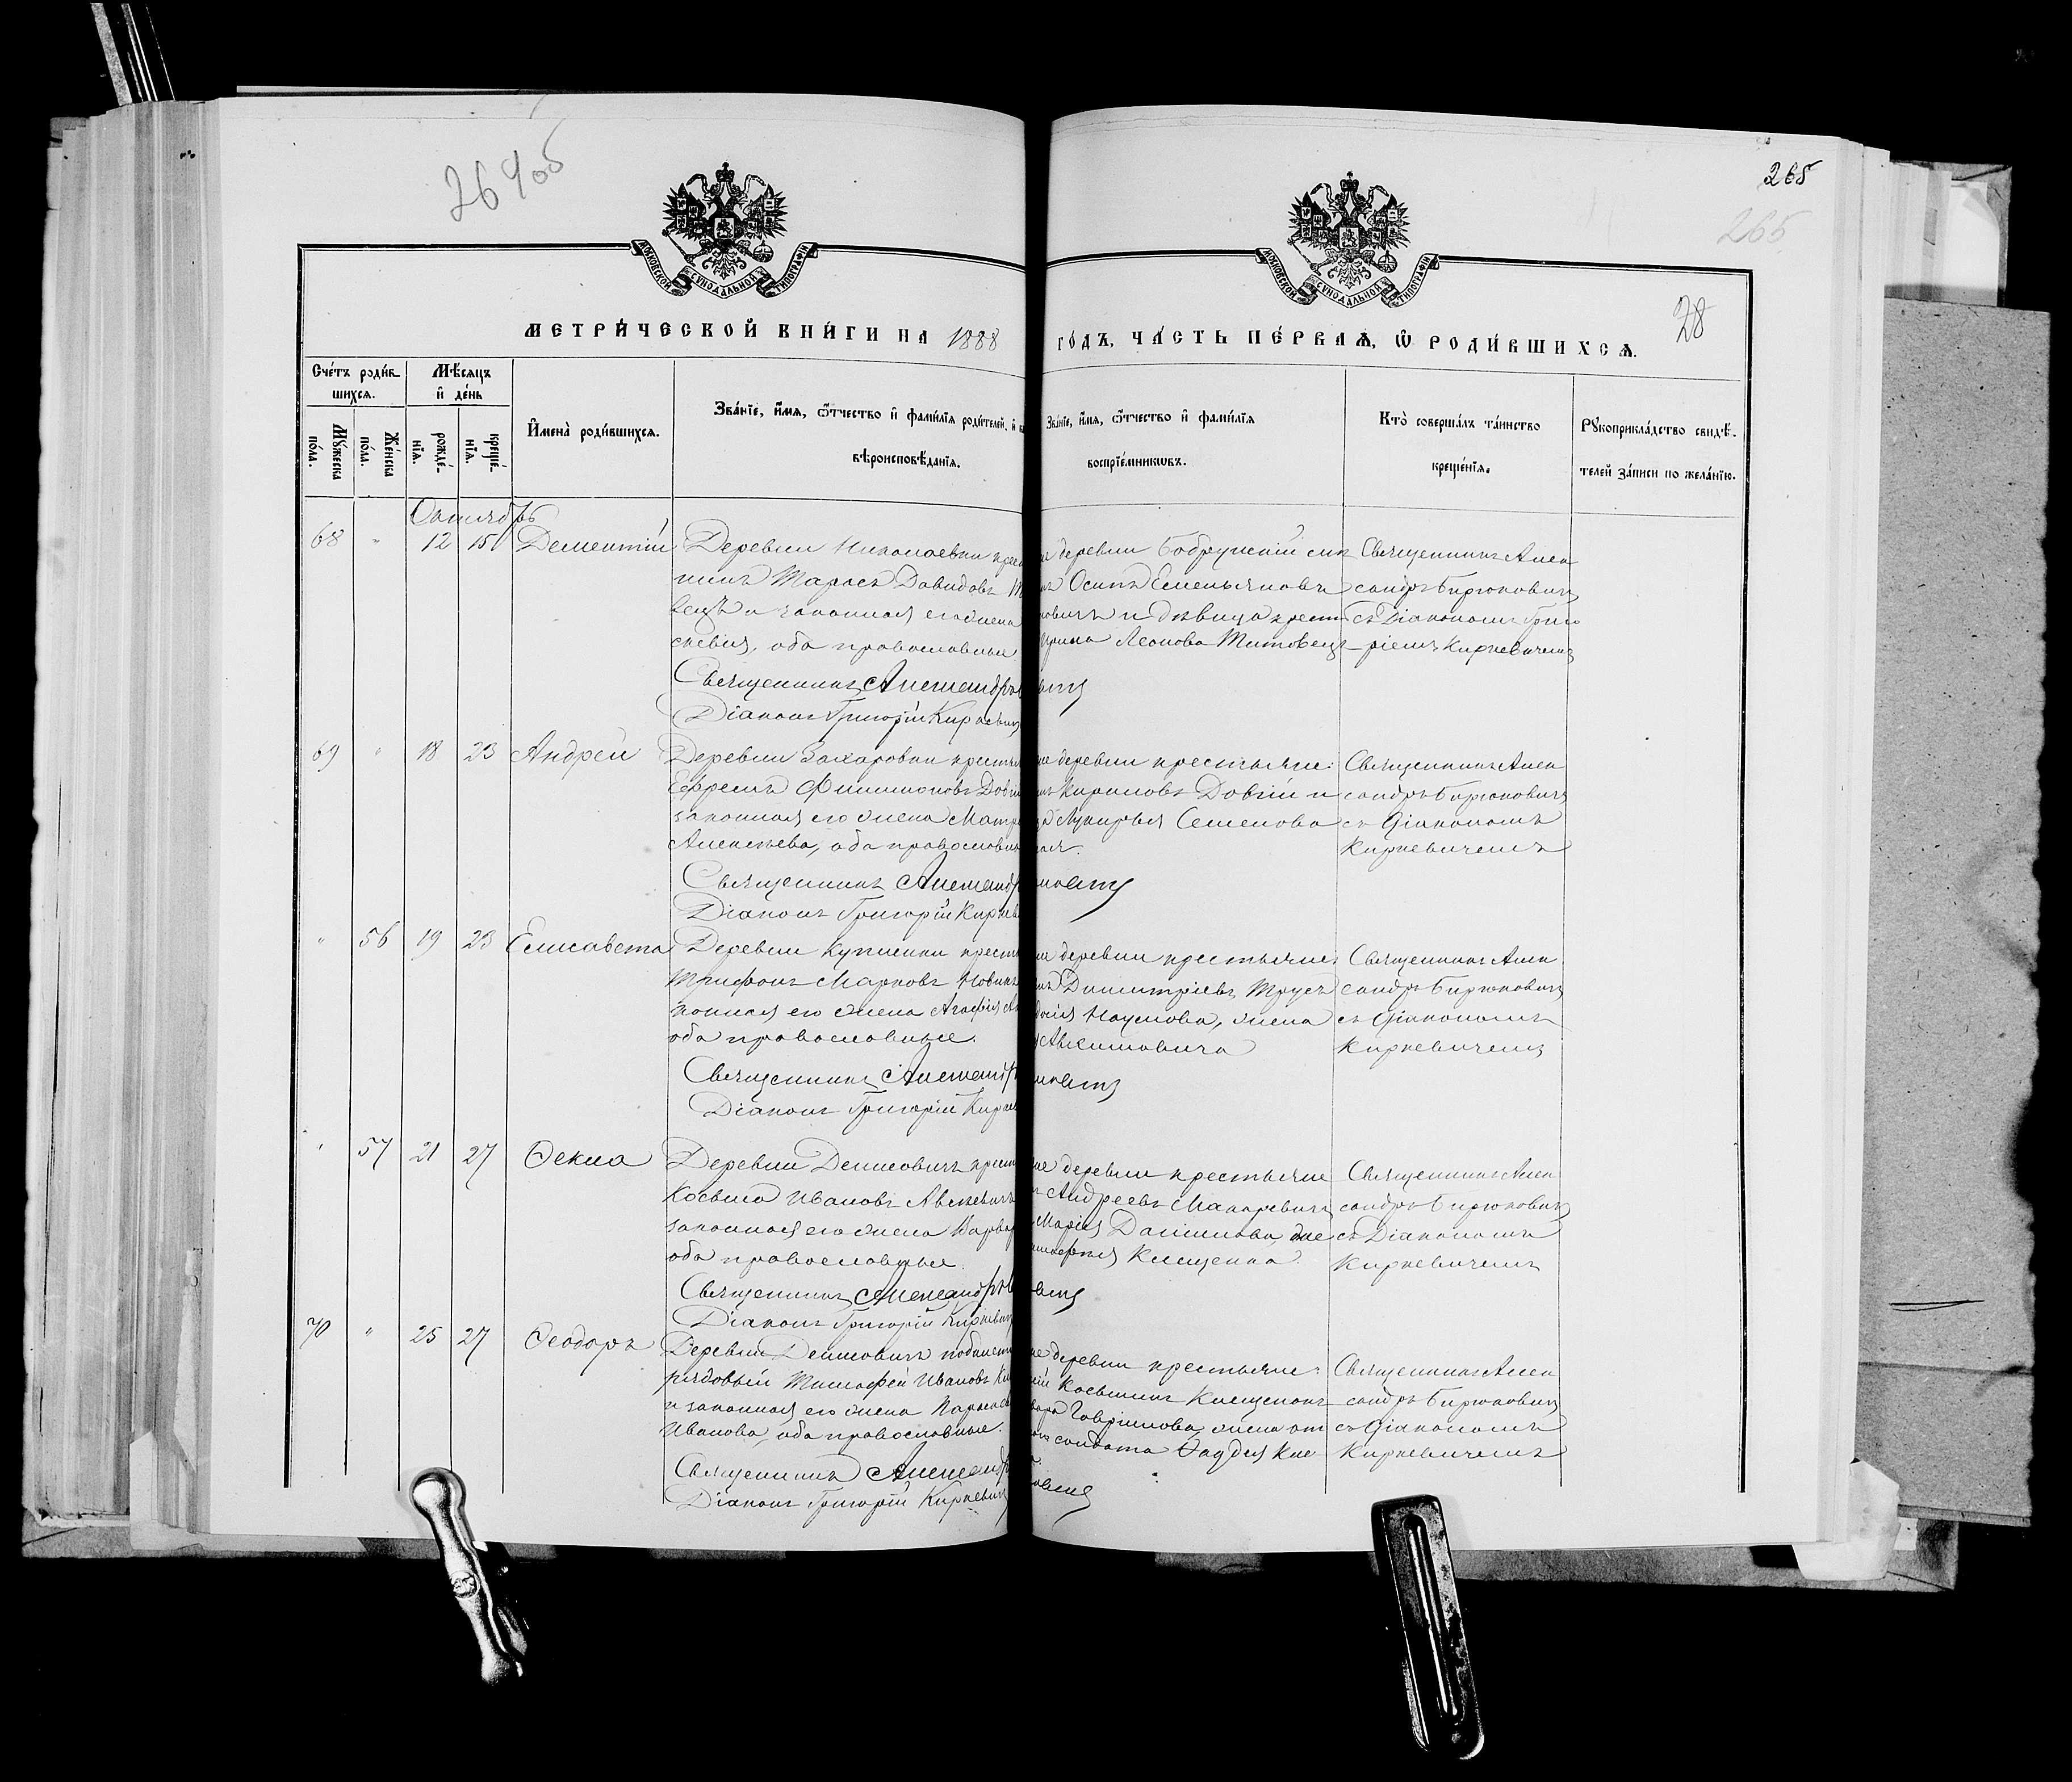 264об
265
265
28
МОСКОВСКОЙ СѴНОДАЛЬНОЙ ТИПОГРАФІИ
МОСКОВСКОЙ СѴНОДАЛЬНОЙ ТИПОГРАФІИ
МЕТРИ́ЧЕСКОЙ КНИ́ГИ НА 1888 ГО́ДЪ, ЧА́СТЬ ПЕ́РВАЯ, Ѡ РОДИ́ВШИХСЯ.
Сче́тъ роди́в-
шихся.
Мѣ́сяцъ
и де́нь
Мꙋ́жеска по́ла.
Же́нска по́ла.
рожде́-нїя.
креще́-нїя.
Имена̀ роди́вшихся.
Зва́нїе, и́мя, ѻ́тчество и фами́лїя роди́телей, и
вѣроисповѣ́данїя.
Зва́нїе, и́мя, ѻ́тчество и фами́лїя
воспрїе́мникѡвъ.
Кто̀ соверша́лъ та́инство
креще́нїя.
Рꙋкоприкла́дство свидѣ́-
телей за́писи по жела́нїю.
Октябрь
68 " 12 15 Дементій
Деревни Николаевки крест
нинъ Тарасъ Давидовъ
вецъ и законная его жена
евна, оба православные
Священникъ Александръ
Діаконъ Григорій Киркевичъ
деревни
Осипъ Емельяновъ
новичъ и дѣвица крест
Ирина Леонова Титовецъ
Священникъ Алек
сандръ Бирюковичъ
съ Діакономъ Григо
ріемъ Киркевичемъ
69 " 18 23 Андрей
Деревни Захаровки крестья
Ефремъ Филимоновъ Довгій
законная его жена Матр
Алексѣева, оба православн
Священникъ Александр
Діаконъ Григорій Киркев
же деревни крестьяне:
Кириловъ Довгій и
Лукирья Семенова
Священникъ Алек
сандръ Бирюковичъ
съ Діакономъ
Киркевичемъ
" 56 19 23 Елисавета
Деревни крест
Трифонъ Марковъ Новик
конная его жена Агафія
оба православные.
Священникъ Александръ
Діаконъ Григорій Кирке
же деревни крестьяне:
Димитріевъ Трусъ
Наумова, жена
Священникъ Алек
сандръ Бирюковичъ
съ Діакономъ
Киркевичемъ
" 57 21 27 Ѳекла
Деревни Денисовичъ крест
Косьма Ивановъ
законная его жена Варвар
оба православные.
Священникъ Александръ
Діаконъ Григорій Киркевич
же деревни крестьяне
Андреевъ Макаревичъ
Марія Даниилова, же
Клещенка.
Священникъ Алек
сандръ Бирюковичъ
съ Діакономъ
Киркевичемъ
70 " 25 27 Ѳеодоръ
Деревни Денисовичъ
рядовый Тимофей Ивановъ
и законная его жена Параске
Иванова, оба православные.
Священникъ Александр
Діаконъ Григорій Киркевич
же деревни крестьяне:
Косьминъ Клещенокъ
Гавріилова, жена от
солдата Ѳаддея Кле
Священникъ Алек
сандръ Бирюковичъ
съ Діакономъ
Киркевичемъ